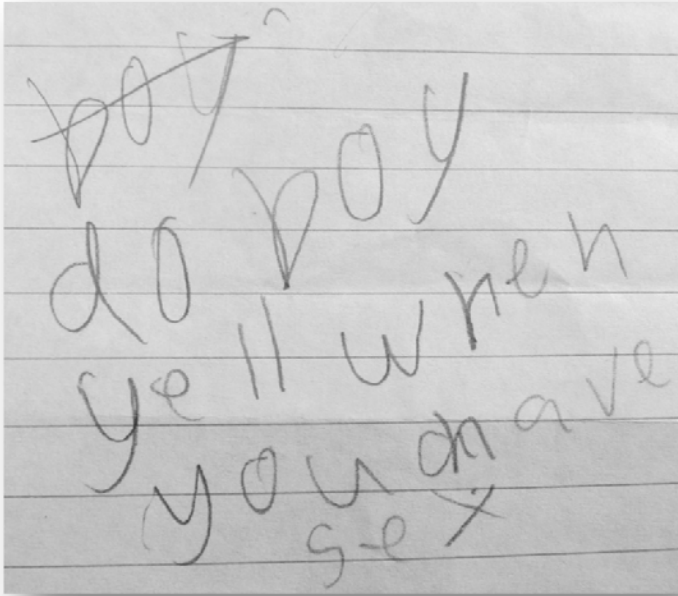 boy
do boy
yell when
you have
sex